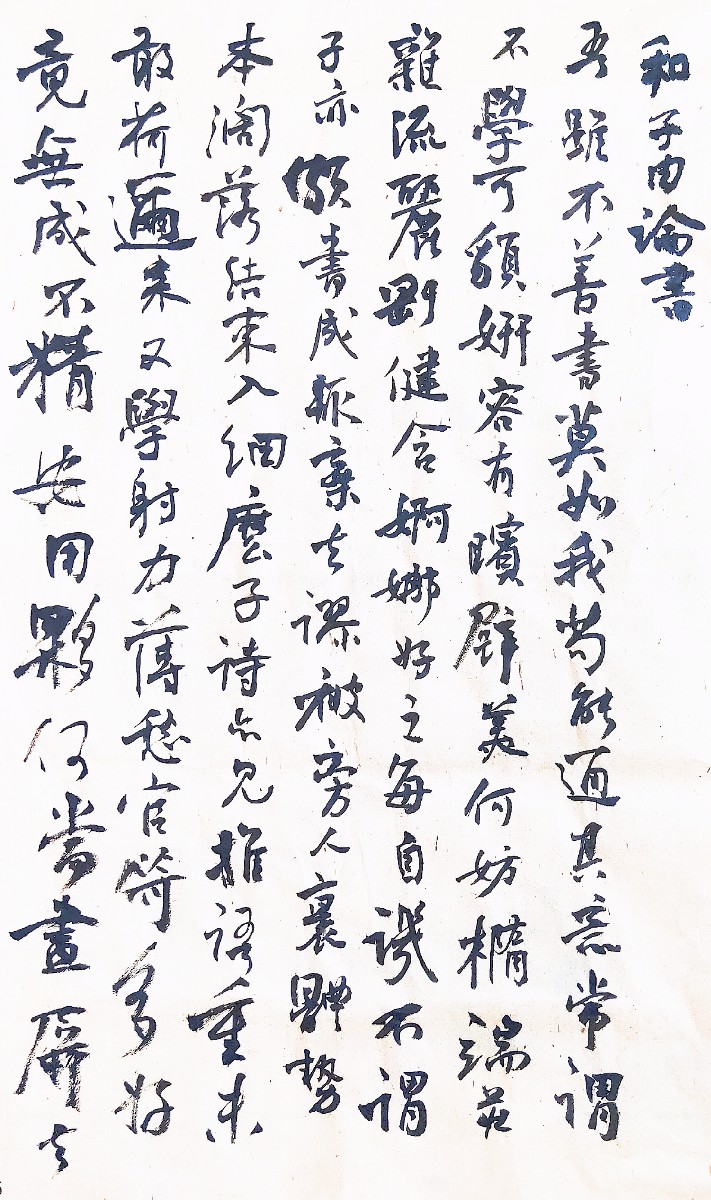 和子由論書
吾雖不善書莫如我苟能通其意常謂
不學可貌妍容有矉璧美何妨橢端莊
雜流麗剛健含婀娜好之每自譏不謂
子亦頗書成輒棄去謬被旁人裹體勢
本闊落結束入細麼子詩亦見推語重未
敢荷邇來又學射力薄愁官笴多好
竟無成不精安用夥何當盡屏去